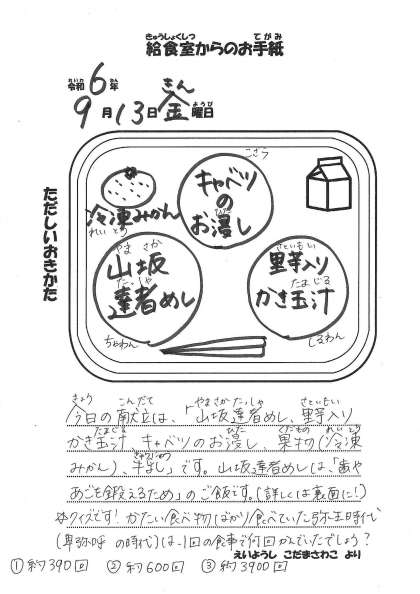 きゅうしょくしつ てがみ
給食室からのお手紙
れいわ ねん きん
令和6年
9月13日金曜日
ようび
ただしいおきかた
こざら
キャベツ
のお浸し
ひた
冷凍みかん
れいとう
やまさか
山坂
たっしゃ
達者めし
ちゃわん
さといもい
里芋入り
たまじる
かき玉汁
しるわん
きょう こんだて やまさかたっしゃ さといもい
今日の献立は、「山坂達者めし、里芋入り
たまじる ひた くだもの れいとう
かき玉汁、キャベツのお浸し、果物(冷凍
ぎゅうにゅう
みかん)、牛乳」です。山坂達者めしは、「歯や
あごを鍛えるため」のご飯です。(詳しくは裏面に!)
☆クイズです!かたい食べ物ばかり食べていた弥生時代
(卑弥呼の時代)は、1回の食事で何回かんでいたでしょう?
えいようし こだまさわこ より
①約390回 ②約600回 ③約3900回